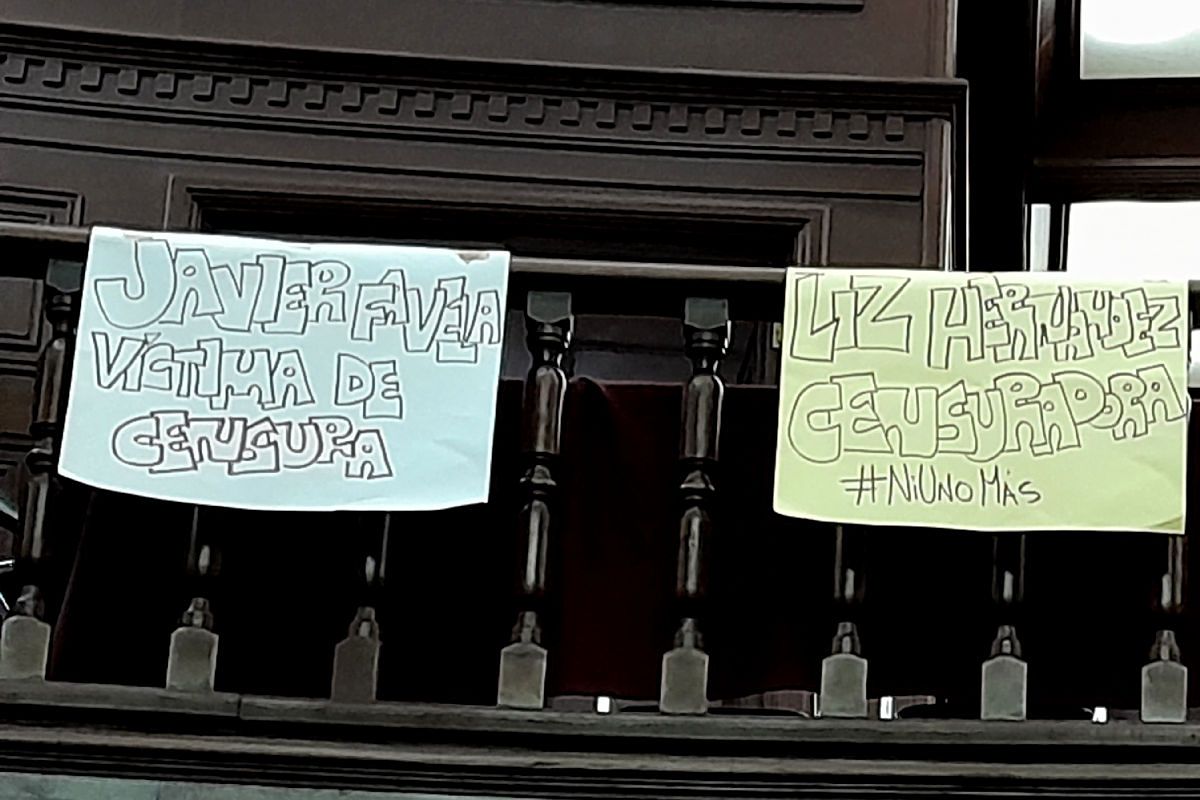 JAVIER FAVELA
VÍCTIMA DE
CENSURA
LIZ HERNÁNDEZ
CENSURADORA
#NiUNoMás